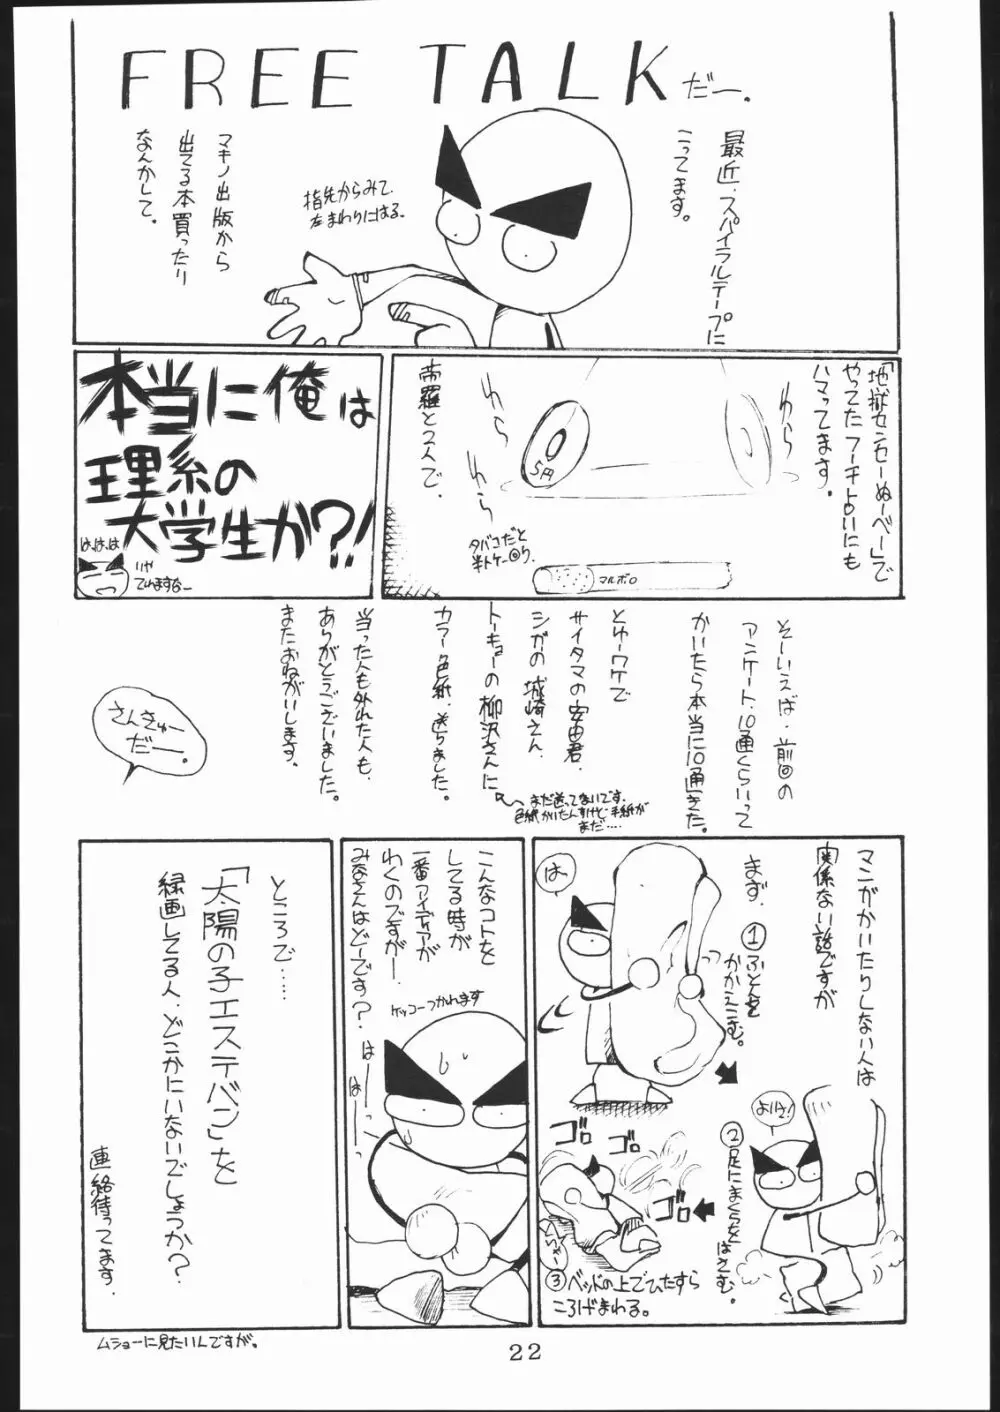 FREE TALKだー.
最近.スパイラルテープに
こってます。
指先からみて.
左まわりにはる。
マキノ出版から
出てる本買ったり
なんかして。
「地獄センセーぬーべー」で
やってたフーチよいにも
ハマってます。
わら
5円
わら
わら
帝羅と2人で。
タバコだと
マルボロ
本当に俺は
理系の
大学生か?!
は、は、は
いや
てれますなー
そーいえば.前回の
アンケート、10通くらいって
かいたら本当に10通きた。
とゆーワケで
サイタマの安田君.
シガの城崎さん.
トーキョーの柳沢さんに
カラー色紙.送りました。
まだ送ってないです.
色紙かいたんすけど.手紙が
まだ....
当った人も外れた人も.
ありがとうございました。
またおねがいします。
さんきゅー
だー。
マンガかいたりしない人は
関係ない話ですが
まず.
①ふとんを
かかえこむ。
は
よいしょ!
②足にまくらを
はさむ。
ゴロ
ゴロ
ゴロ
③ベッドの上でひたすら
ころげまわる。
こんなコトを
してる時が
一番アイディアが
わくのですがー.
みなさんはどーです?.
ケッコーつかれます
はーっ
はーっ
ところで……
「太陽の子エステバン」を
録画してる人、どこかにいないでしょうか?
連絡待ってます.
ムショーに見たいんですが。
22